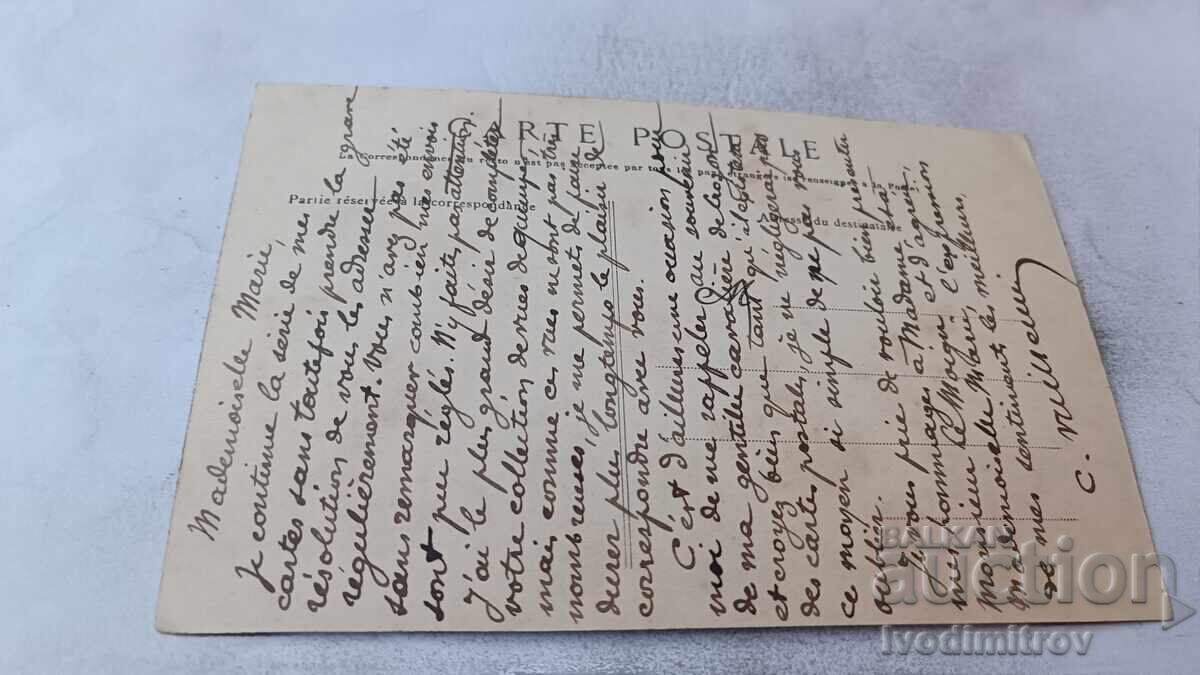 CARTE POSTALE
La correspondance au recto n'est pas acceptée par tous les pays étrangers (se renseigner à la Poste)
Partie réservée à la correspondance
Adresse du destinataire
Mademoiselle Marie
Je continue la série de mes
cartes sans toutefois prendre la grave
résolution de vous les adresser
régulièrement. Vous n'avez pas été
sans remarquer combien mes envois
sont peu réglés. N'y faites pas attention.
J'ai le plus grand désir de compléter
votre collection de vues de
mais comme ces vues ne sont pas très
nombreuses, je me permets de faire
durer plus longtemps le plaisir de
correspondre avec vous.
C'est d'ailleurs une occasion pour
moi de me rappeler au souvenir
de ma gentille cavalière de
et croyez bien que tant qu'il
des cartes postales, je ne négligerai pas
ce moyen si simple de ne pas vous
oublier.
Je vous prie de vouloir bien présenter
mes hommages à Madame
Monsieur Le Moign et d'agréer,
Mademoiselle Marie, l'expression
de mes sentiments les meilleurs.
C.
BALKAN
auction
Ivodimitrov